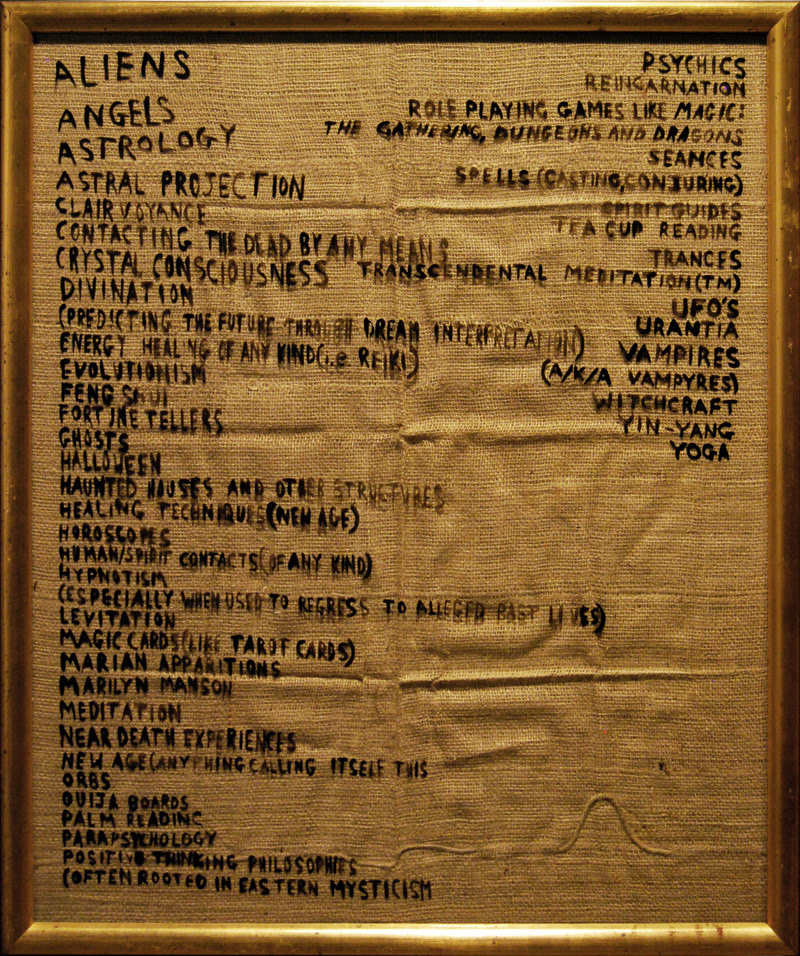 ALIENS
ANGELS
ASTROLOGY
ASTRAL PROJECTION
CLAIRVOYANCE
CONTACTING THE DEAD BY ANY MEANS
CRYSTAL CONSCIOUSNESS
DIVINATION
(PREDICTING THE FUTURE THROUGH DREAM INTERPRETATION)
ENERGY HEALING OF ANY KIND(i.e. REIKI)
EVOLUTIONISM
FENG SHUI
FORTUNE TELLERS
GHOSTS
HALLOWEEN
HAUNTED HOUSES AND OTHER STRUCTURES
HEALING TECHNIQUES(NEW AGE)
HOROSCOPES
HUMAN/SPIRIT CONTACTS(OF ANY KIND)
HYPNOTISM
(ESPECIALLY WHEN USED TO REGRESS TO ALLEGED PAST LIVES)
LEVITATION
MAGIC CARDS(LIKE TAROT CARDS)
MARIAN APPARITIONS
MARILYN MANSON
MEDITATION
NEAR DEATH EXPERIENCES
NEW AGE(ANYTHING CALLING ITSELF THIS
ORBS
OUIJA BOARDS
PALM READING
PARAPSYCHOLOGY
POSITIVE THINKING PHILOSOPHIES
(OFTEN ROOTED IN EASTERN MYSTICISM
PSYCHICS
REINCARNATION
ROLE PLAYING GAMES LIKE MAGIC:
THE GATHERING, DUNGEONS AND DRAGONS
SEANCES
SPELLS (CASTING, CONJURING)
SPIRIT GUIDES
TEA CUP READING
TRANCES
TRANSCENDENTAL MEDITATION(TM)
UFO'S
URANTIA
VAMPIRES
(A/K/A VAMPYRES)
WITCHCRAFT
YIN-YANG
YOGA